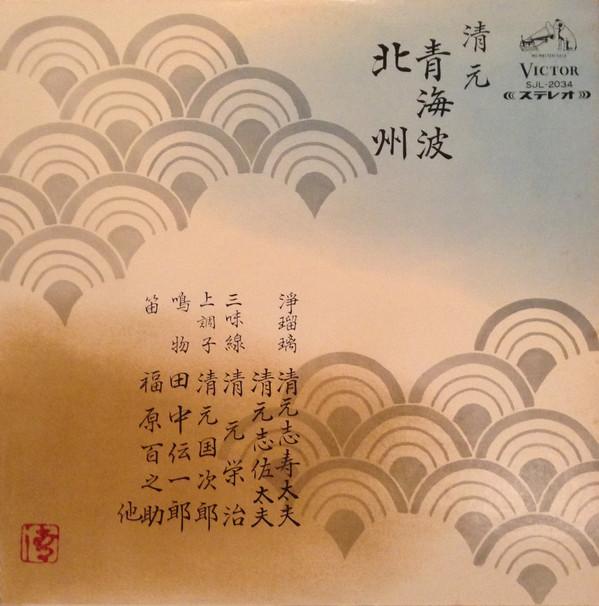 清元
青海波
北州
HIS MASTER'S VOICE
VICTOR
SJL-2034
ステレオ
浄瑠璃 清元志寿太夫
清元志佐太夫
三味線 清元栄治
上調子 清元国次郎
鳴物 田中伝一郎
笛 福原百之助
他